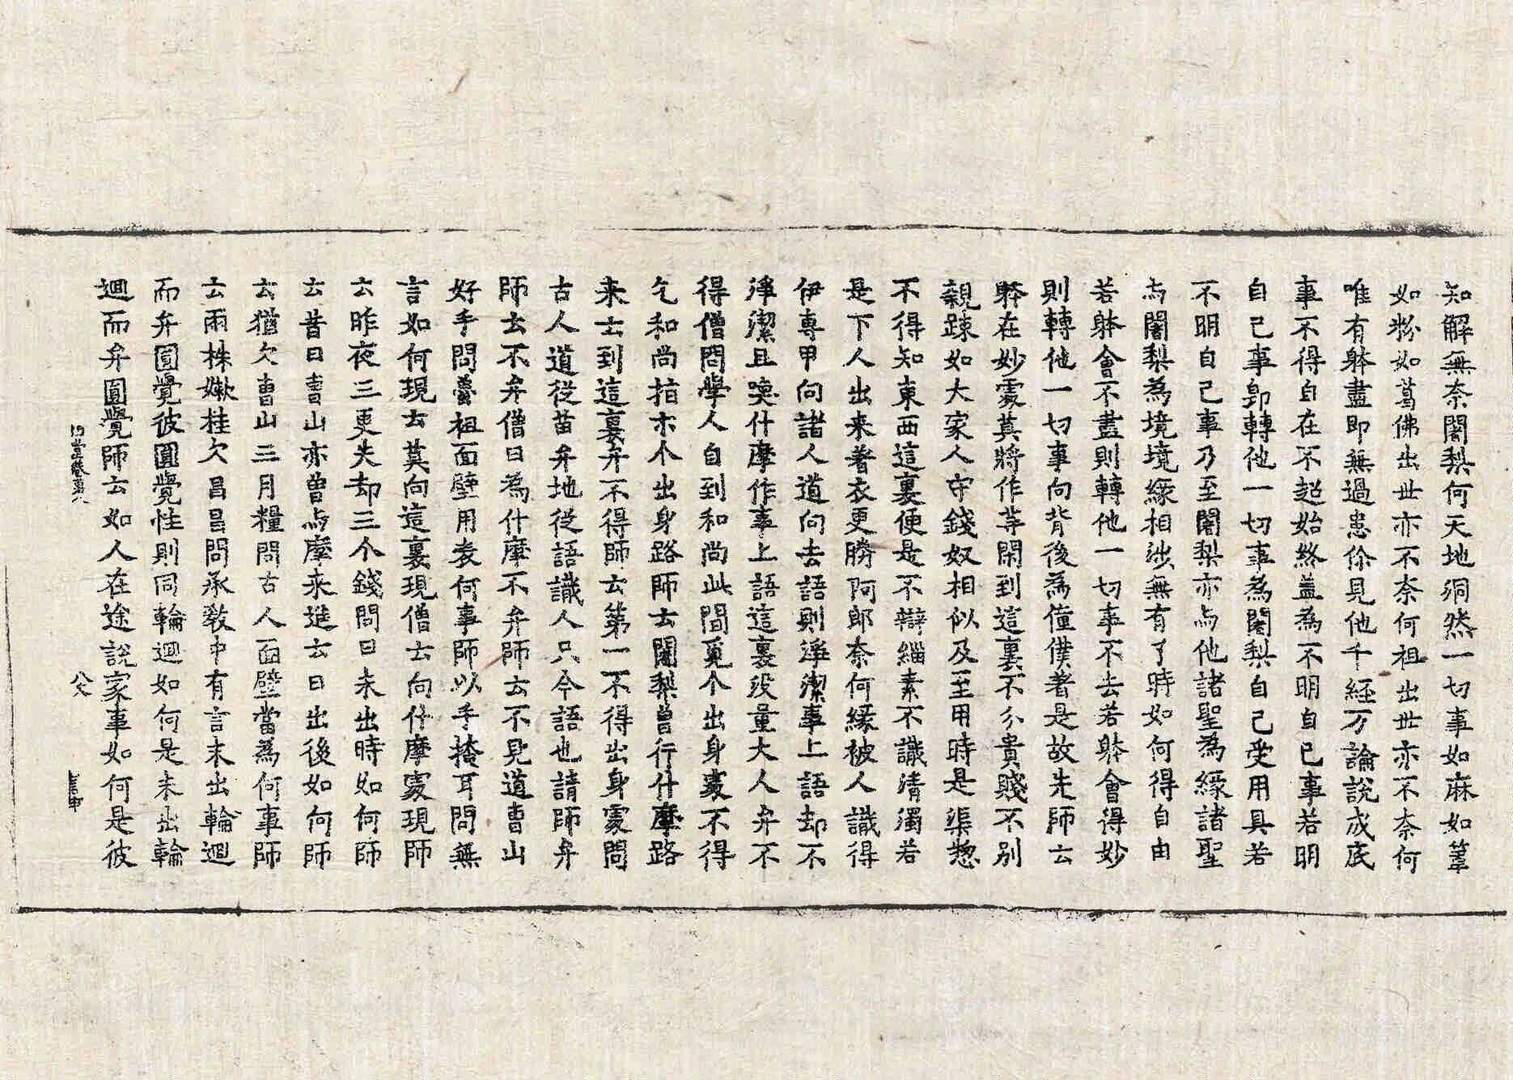 知解無奈闍梨何天地洞然一切事如麻如葦
如粉如葛佛出世亦不奈何祖出世亦不奈何
唯有躰盡即無過患你見他千経万論說成底
事不得自在不超始終盖為不明自己事若明
自己事即轉他一切事為闍梨自己受用具若
不明自己事乃至闍梨亦与他諸聖為緣諸聖
与闍梨為境境緣相涉無有了時如何得自由
若躰會不盡則轉他一切事不去若躰會得妙
則轉他一切事向背後為僮僕者是故先師云
躰在妙處莫將作等閑到這裏不分貴賤不別
親踈如大家人守錢奴相似及至用時是渠惣
不得知東西這裏便是不辯緇素不識清濁若
是下人出来著衣更勝阿郎奈何緣被人識得
伊專甲向諸人道向去語則淨潔事上語却不
淨潔且喚什摩作事上語這裏没量大人弁不
得僧問學人自到和尚此間覓个出身處不得
乞和尚指示个出身路師云闍梨曾行什摩路
来士到這裏弁不得師云第一不得出身處問
古人道從苗弁地從語識人只今語也請師弁
師云不弁僧曰為什摩不弁師云不見道曹山
好手問魯祖面壁用表何事師以手掩耳問無
言如何現云莫向這裏現僧云向什摩處現師
云昨夜三更失却三个錢問日未出時如何師
云昔日曹山亦曾与摩来進云日出後如何師
云猶欠曹山三月糧問古人面壁當為何事師
云雨株嫩桂久昌昌問承教中有言未出輪迴
而弁圓覺彼圓覺性則同輪迴如何是未出輪
迴而弁圓覺師云如人在途說家事如何是彼